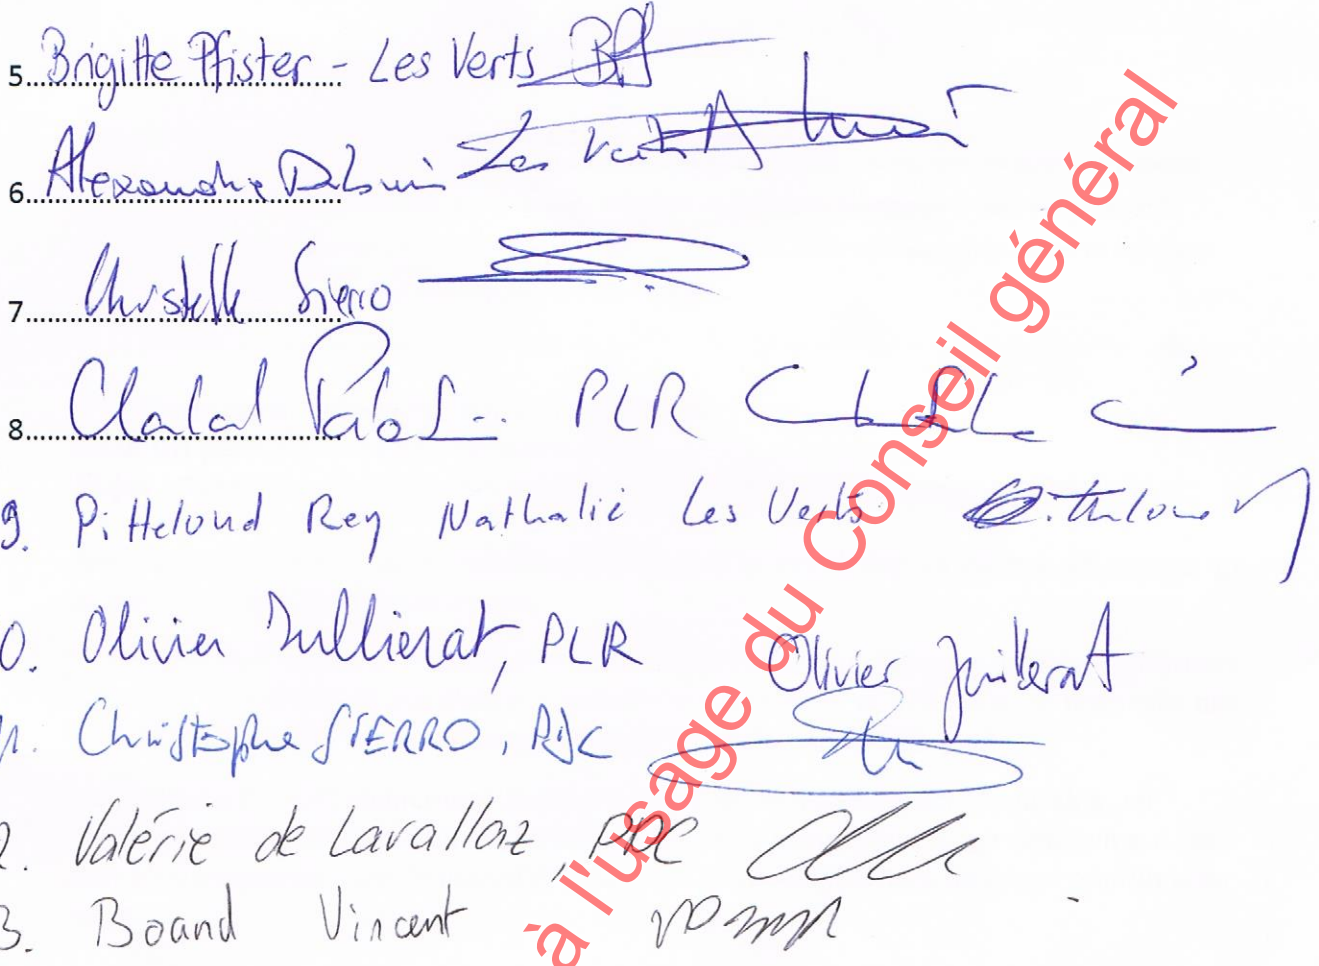 5. Brigitte Pfister - Les Verts
6. Alexandre Les Verts
7. Christelle Sierro
8. PLR
9. Pitteloud Rey Nathalie Les Verts
0. Olivier Jullierat, PLR Olivier Juillerat
1. Christophe SIERRO, PDC
2. Valérie de Lavallaz, PDC
3. Boand Vincent
à l'usage du Conseil général